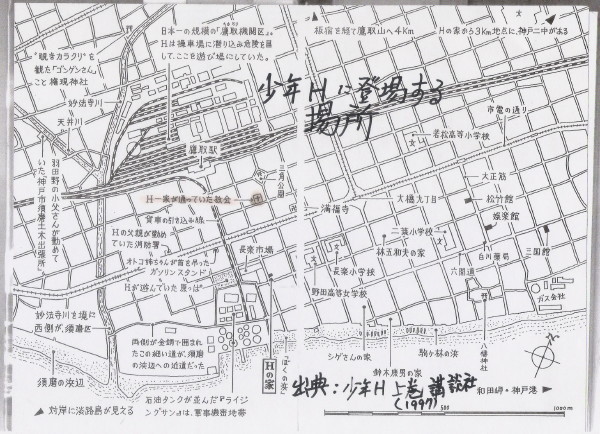 日本一の規模の「鷹取機関区」。
Hは操車場に潜り込み危険を冒
して、ここを遊び場にしていた。
板宿を経て鷹取山へ4km
Hの家から3km地点に、神戸二中がある
"覗きカラクリ"を
観た「ゴンゲンさん」
こと権現神社
少年Hに登場する
場所
妙法寺川
天井川
市電の通り
若松高等小学校
鷹取駅
三角公園
大正筋
羽田野の小父さんが勤めて
いた「神戸市須磨土木出張所」
H一家が通っていた教会
満福寺
大橋九丁目
松竹館
娯楽館
貨車の引き込み線
Hの父親が勤め
ていた消防署
二葉小学校
オトコ姉ちゃんが首を吊った
ガソリンスタンド
長楽市場
林五和夫の家
白川薬局
三国館
長楽小学校
六間道
Hが遊んでいた原っぱ
野田高等女学校
ガス会社
妙法寺川を境に
西側が、須磨区
両側が金網で囲まれ
たこの細い道が、須磨
の浜辺への近道だった
Hの家
「ぼくの浜」
シゲさんの家
駒ヶ林の浜
八幡神社
須磨の浜辺
鈴木康男の家
出典:少年H 上巻 講談社
(1997)
和田岬・神戸港
対岸に淡路島が見える
石油タンクが並んだ「ライジ
ングサン」は、軍事機密地帯
500
1000m